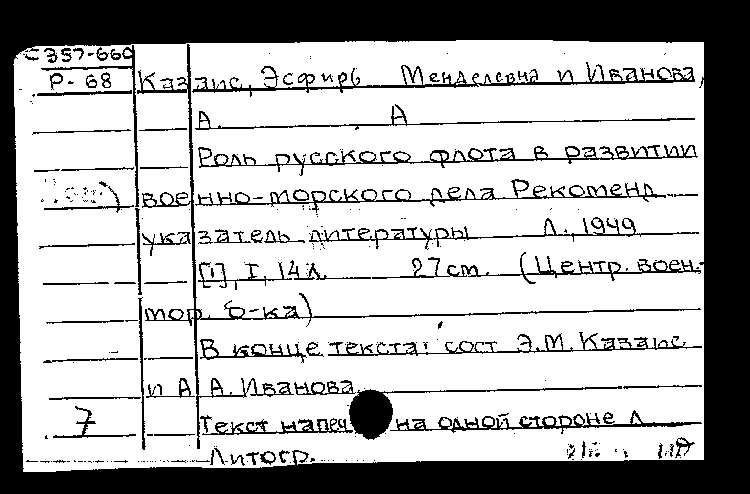 С 357-660
Р-68 Казаис, Эсфирь Менделевна и Иванова,
А. А
Роль русского флота в развитии
военно-морского дела Рекоменд
указатель литературы Л., 1949
[1], I, 14 л. 27 см. (Центр. воен.-
мор. б-ка)
В конце текста: сост Э.М. Казаис
и А А. Иванова
7 Текст напеч на одной стороне л
Литогр.